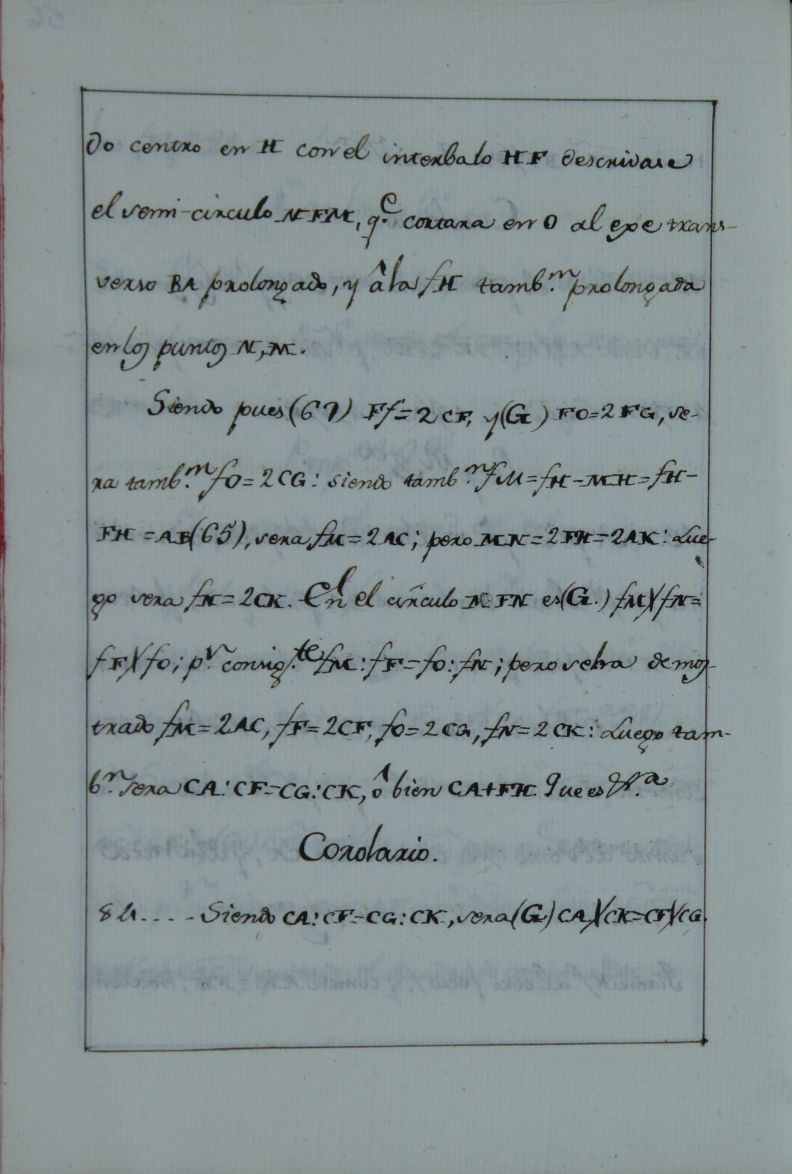 do centro en H con el interbalo HF descrivase
el semi-circulo NFM, q.e cortara en O al exe trans-
verso BA prolongado, y â la fH tamb.n prolongada
en los puntos N, M.
Siendo pues (67) Ff=2CF, y (G) FO=2FG, se-
ra tamb.n fO=2CG: siendo tamb.n fM=fH-MH=fH-
FH=AB(65), sera fM=2AC; pero MN=2FH=2AK: Lue-
go sera fN=2CK. En el circulo MFN es (G.) fM X fN=
fF X fO; p.r consig.te fM:fF=fO:fN; pero se ha demos-
trado fM=2AC, fF=2CF, fO=2CG, fN=2CK: Luego tam-
b.n sera CA:CF=CG:CK, ô bien CA+FH. Que es &.a
Corolario.
84.... Siendo CA:CF=CG:CK, sera (G) CA X CK=CF X CG.